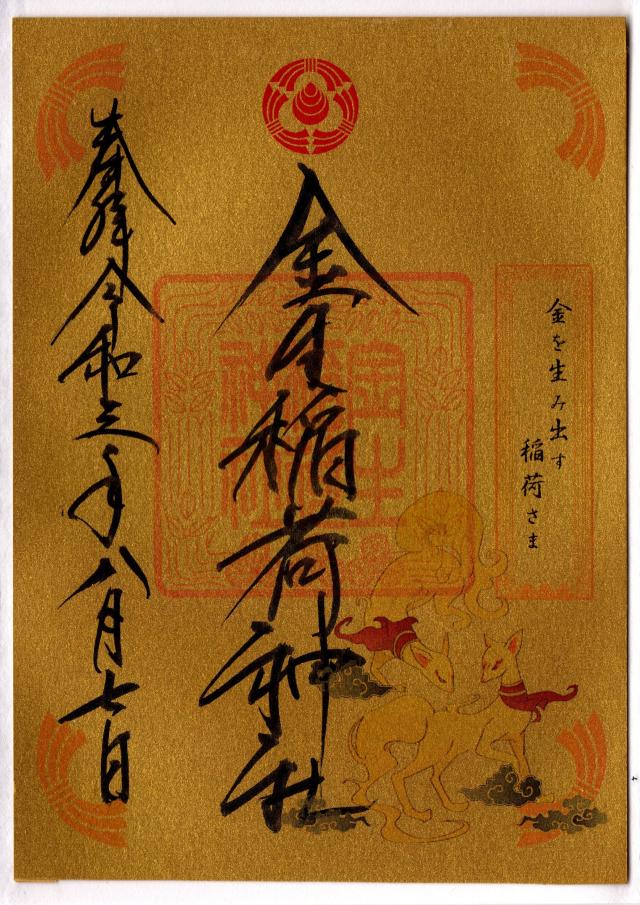 金を生み出す
稲荷さま
金生稲荷神社
奉拝 令和三年八月七日
金生
神社